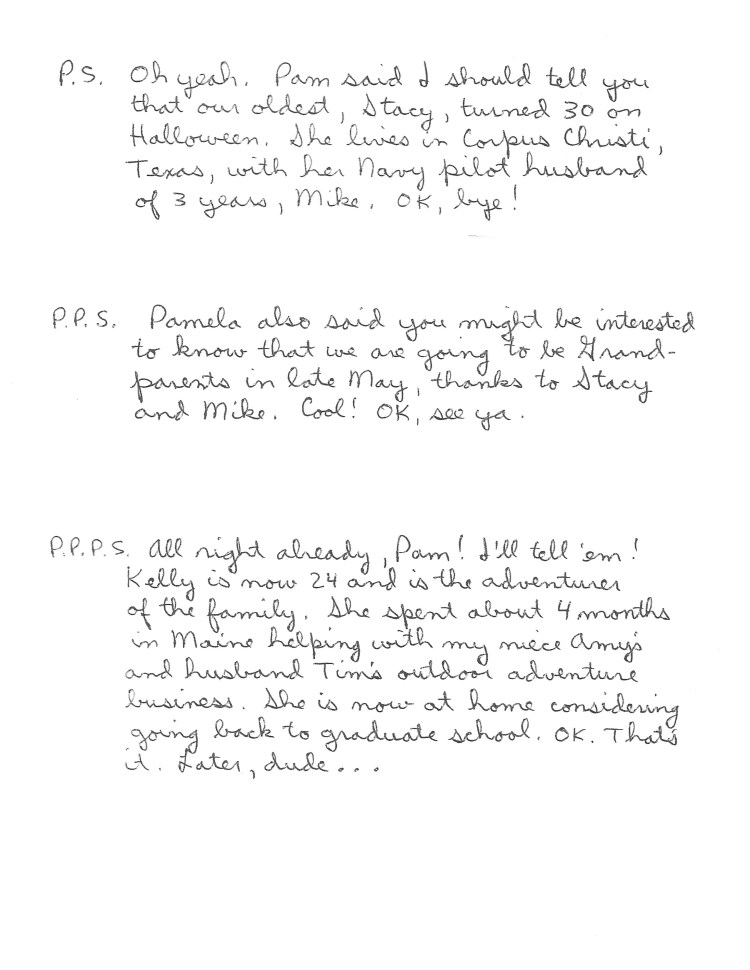 P.S. Oh yeah. Pam said I should tell you
that our oldest, Stacy, turned 30 on
Halloween. She lives in Corpus Christi,
Texas, with her Navy pilot husband
of 3 years, Mike. OK, bye!
P.P.S. Pamela also said you might be interested
to know that we are going to be Grand-
parents in late May, thanks to Stacy
and Mike. Cool! OK, see ya.
P.P.P.S. All right already, Pam! I'll tell 'em!
Kelly is now 24 and is the adventurer
of the family. She spent about 4 months
in Maine helping with my niece Amy's
and husband Tim's outdoor adventure
business. She is now at home considering
going back to graduate school. OK. That's
it. Later, dude...